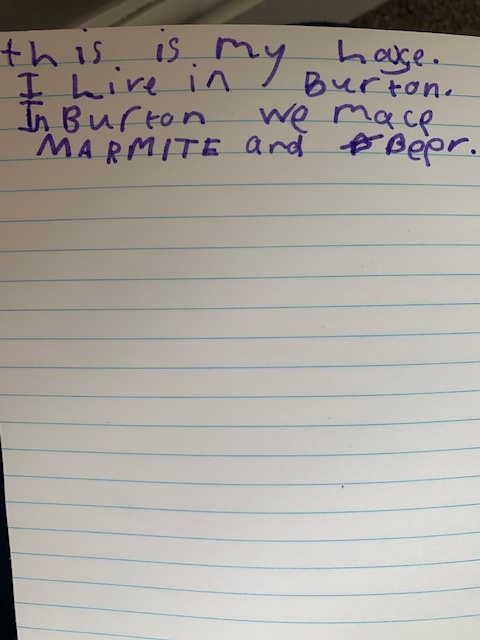 this is my house.
I Live in Burton.
In Burton we mace
MARMITE and Beer.